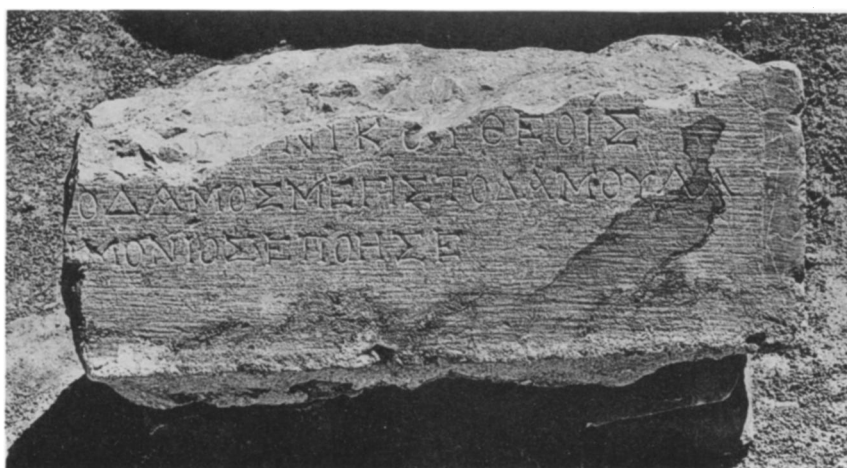 ΝΙΚΟΥΘΕΟΙΣ
ΟΔΑΜΟΣΜΕΓΙΣΤΟΔΑΜΟΥΛΑ
ΜΟΝΙΟΣΕΠΟΗΣΕ